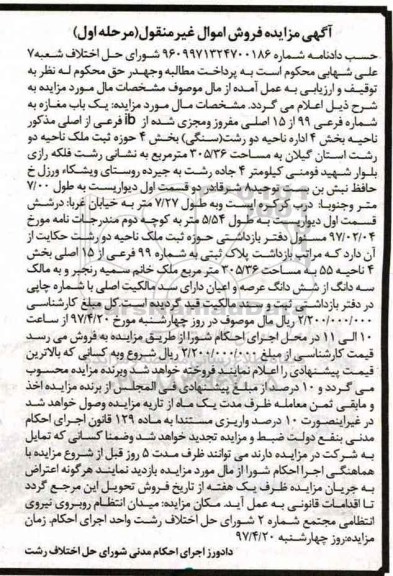 آگهی مزایده فروش اموال غیر منقول(مرحله اول)
حسب دادنامه شماره ۹۶۰۹۹۷۱۳۲۴۷۰۰۱۸۶ شورای حل اختلاف شعبه۷
علی شهابی محکوم است به پرداخت مطالبه وجهدر حق محکوم له نظر به
توقیف و ارزیابی به عمل آمده از مال موصوف مشخصات مال مورد مزایده به
شرح ذیل اعلام می گردد. مشخصات مال مورد مزایده: یک باب مغازه به
شماره فرعی ۹۹ از ۱۵ اصلی مفروز ومجزی شده از ib فرعی از اصلی مذکور
ناحیه بخش ۴ اداره ناحیه دو رشت(سنگی) بخش ۴ حوزه ثبت ملک ناحیه دو
رشت استان گیلان به مساحت ۳۰۵/۳۶ مترمربع به نشانی رشت فلکه رازی
بلوار شهید فومنی کیلومتر ۴ جاده رشت به جیرده روستای ویشکاء ورزل خ
حافظ نبش بن بست توحید۵ شرقادر دو قسمت اول دیواریست به طول ۷/۰۰
متر وجنوبا: درب کرکره ایست وبه طول ۷/۲۷ متر به خیابان غربا: درشش
قسمت اول دیواریست به طول ۵/۵۴ متر به کوچه دوم مندرجات نامه مورخ
۹۷/۰۲/۰۴ مسئول دفتر بازداشتی حوزه ثبت ملک ناحیه دو رشت حکایت از
آن دارد که مراتب بازداشت پلاک ثبتی به شماره ۹۹ فرعی از ۱۵ اصلی بخش
۴ ناحیه ۵۵ به مساحت ۳۰۵/۳۶ متر مربع ملک خانم سمیه رنجبر و به مالک
سه دانگ از شش دانگ عرصه و اعیان دارای سند مالکیت اصلی با شماره چاپی
در دفتر بازداشتی ثبت و سند مالکیت قید گردیده است.کل مبلغ کارشناسی
۲/۲۰۰/۰۰۰/۰۰۰ ریال مال موصوف در روز چهارشنبه مورخ ۹۷/۴/۲۰ از ساعت
۱۰ الی ۱۱ در محل اجرای احکام شورا از طریق مزایده به فروش می رسد
قیمت کارشناسی از مبلغ ۲/۲۰۰/۰۰۰/۰۰۰ ریال شروع وبه کسانی که بالاترین
قیمت پیشنهادی را اعلام نمایند فروخته خواهد شد وبرنده مزایده محسوب
می گردد و ۱۰ درصد از مبلغ پیشنهادی فی المجلس از برنده مزایده اخذ
و مابقی ثمن معامله ظرف مدت یک ماه از تاریه مزایده وصول خواهد شد
در غیراینصورت ۱۰ درصد واریزی مستندا به ماده ۱۲۹ قانون اجرای احکام
مدنی بنفع دولت ضبط و مزایده تجدید خواهد شد وضمنا کسانی که تمایل
به شرکت در مزایده دارند می توانند ظرف مدت ۵ روز قبل از شروع مزایده با
هماهنگی اجرا احکام شورا از مال مورد مزایده بازدید نمایند هرگونه اعتراض
به جریان مزایده ظرف یک هفته از تاریخ فروش تحویل این مرجع گردد
تا اقدامات قانونی به عمل آید. مکان مزایده: میدان انتظام روبروی نیروی
انتظامی مجتمع شماره ۲ شورای حل اختلاف رشت واحد اجرای احکام. زمان
مزایده:روز چهارشنبه ۹۷/۴/۲۰
دادورز اجرای احکام مدنی شورای حل اختلاف رشت